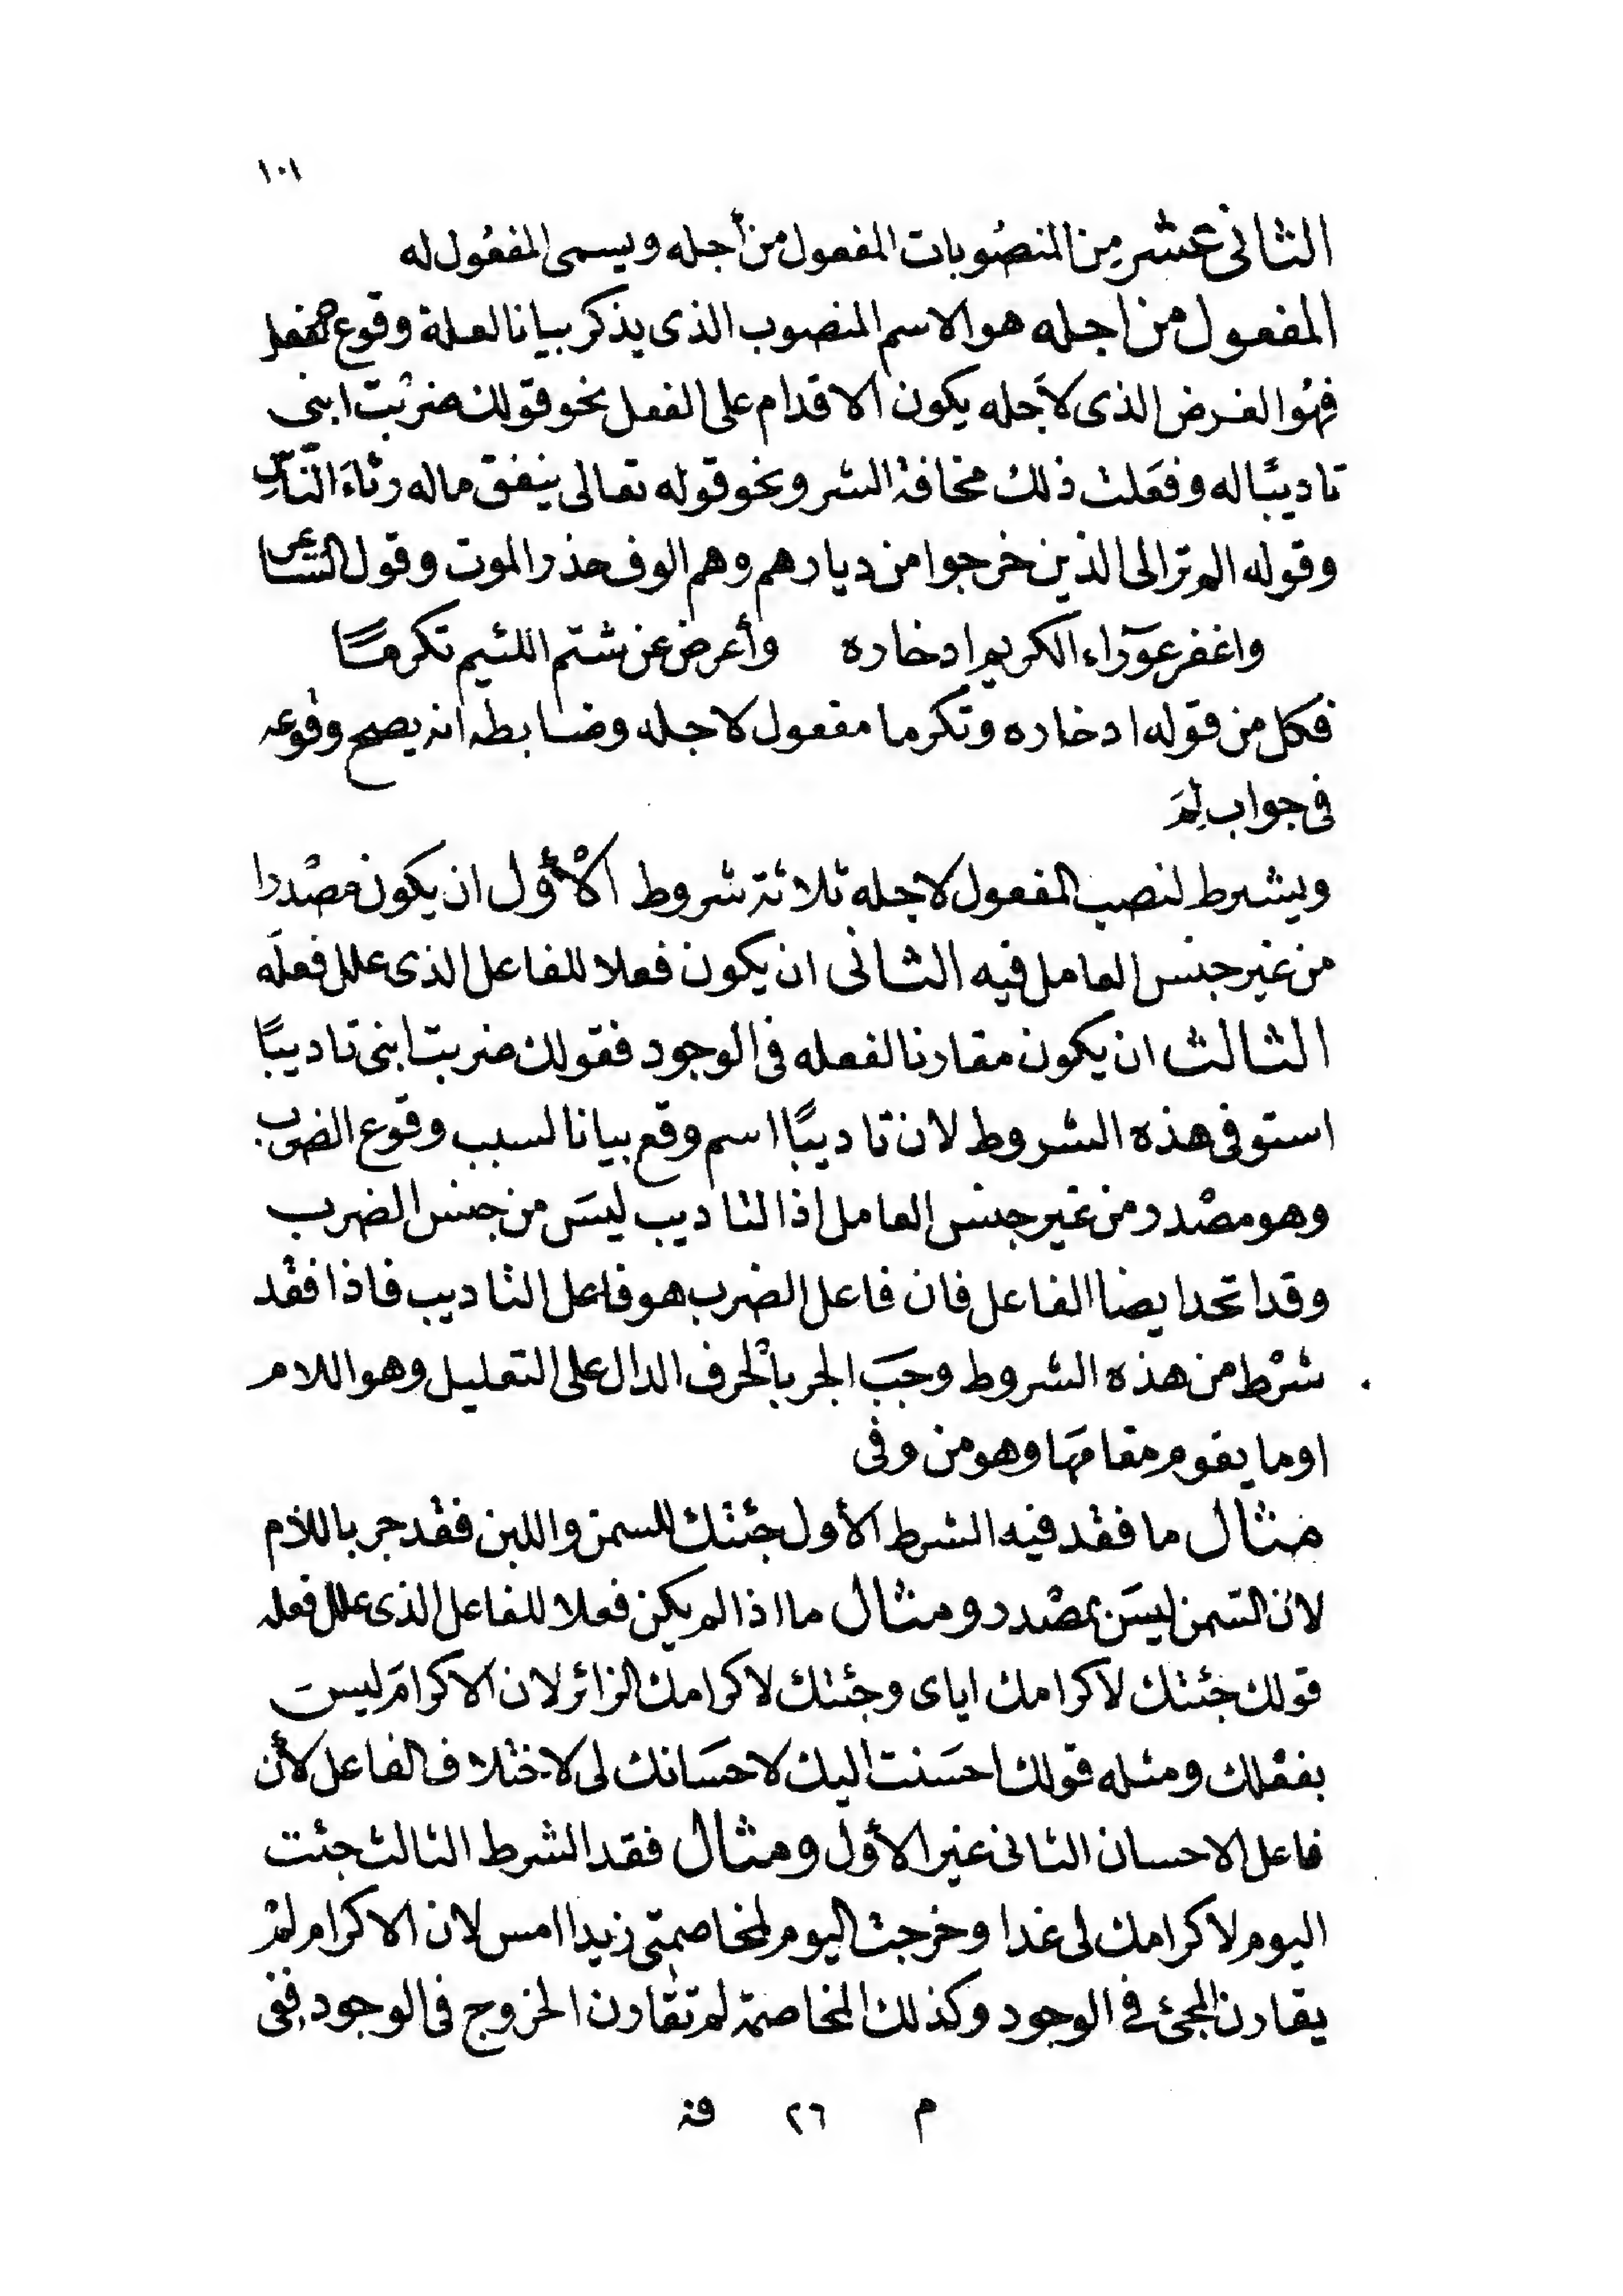 ١٠١
الثانى عشر مِن المنصُوبات المفعول من أجله ويسمى المفعُول له
المفعول من اجله هو الاسم المنصوب الذى يذكر بيانا لعلة وقوع الفعل
فهُو الغرض الذى لأجله يكون الاقدام على الفعل نحو قولك ضربْت ابنى
تاديبًا له وفعَلت ذلك مخافة الشر ونحو قوله تعالى ينفق ماله رئاءَ النَّاسِ
وقوله الم تر الى الذين خرجوا من ديارهم وهم الوف حذر الموت وقول الشاعر
واغفر عوَرآء الكريم ادخاره وأعرض عن شتم اللئيم تكرمًا
فكل من قوله ادخاره وتكرما مفعول لاجله وضابطه انه يصح وقوعه
فى جواب لِمَ
ويشرط لنصب المفعول لاجله ثلاثة شروط الْأوّل ان يكون مصْدرا
من غير جنس العامل فيه الثانى ان يكون فعلا للفاعل الذى علل فعلَه
الثالث ان يكون مقارنا لفعله فى الوجود فقولك ضربت ابنى تاديبًا
استوفى هذه الشروط لان تاديبًا اسم وقع بيانا لسبب وقوع الضرب
وهو مصْدر من غير جنس العامل اذا التاديب ليسَ من جنس الضرب
وقد اتحد ايضا الفاعل فان فاعل الضرب هو فاعل التاديب فاذا فقْد
شرْط من هذه الشروط وجَبَ الجر بالْحرف الدال على التعليل وهو اللام
او ما يقوم مقامهَا وهو من وفى
مثال ما فقْد فيه الشرط الأول جئتك للسمن واللبن فقْد جر باللام
لان السَمن ليسَ بمصْدر ومثال ما اذا لم يكن فعلا للفاعل الذى علل فعله
قولك جئتك لاكرامك اياى وجئتك لاكرامك الزائر لان الاكرامَ ليسَ
بفعْلك ومثله قولك احسَنت اليك لاحسَانك لى لاختلاف الفاعل لأن
فاعل الاحسان الثانى غير الأول ومثال فقد الشرط الثالث جئت
اليوم لاكرامك لى غدا وخرجت اليوم لمخاصمتى زيدا امس لان الاكرام لمْ
يقارن المجئ فى الوجود وكذلك المخاصمة لم تقارن الخروج فى الوجود ففى
م ٢٦ فة